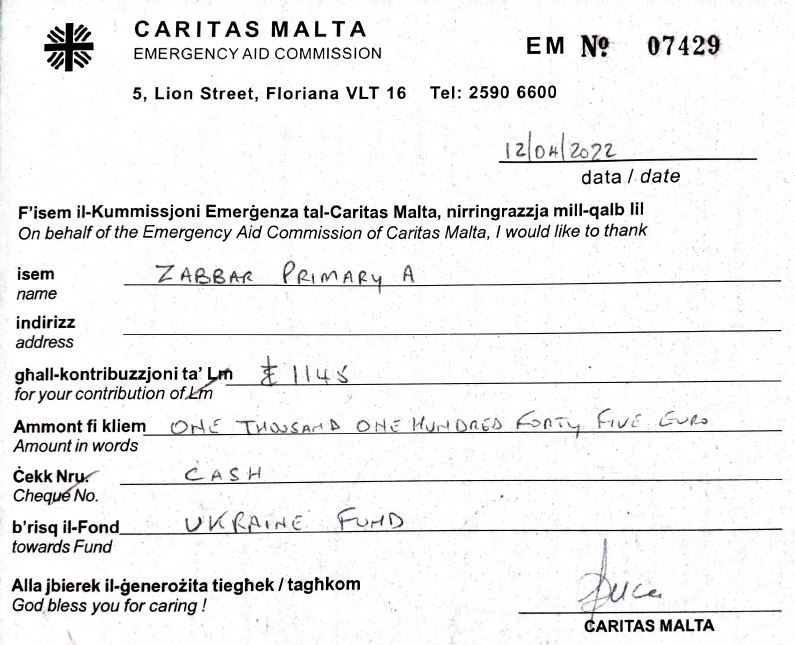 CARITAS MALTA
EMERGENCY AID COMMISSION
EM Nº 07429
5, Lion Street, Floriana VLT 16 Tel: 2590 6600
12/04/2022
data / date
F'isem il-Kummissjoni Emerġenza tal-Caritas Malta, nirringrazzja mill-qalb lil
On behalf of the Emergency Aid Commission of Caritas Malta, I would like to thank
isem ZABBAR PRIMARY A
name
indirizz
address
għall-kontribuzzjoni ta' Lm € 1145
for your contribution of Lm
Ammont fi kliem ONE THOUSAND ONE HUNDRED FORTY FIVE EURO
Amount in words
Ċekk Nru. CASH
Cheque No.
b'risq il-Fond UKRAINE FUND
towards Fund
Alla jbierek il-ġenerożita tiegħek / tagħkom
God bless you for caring !
CARITAS MALTA